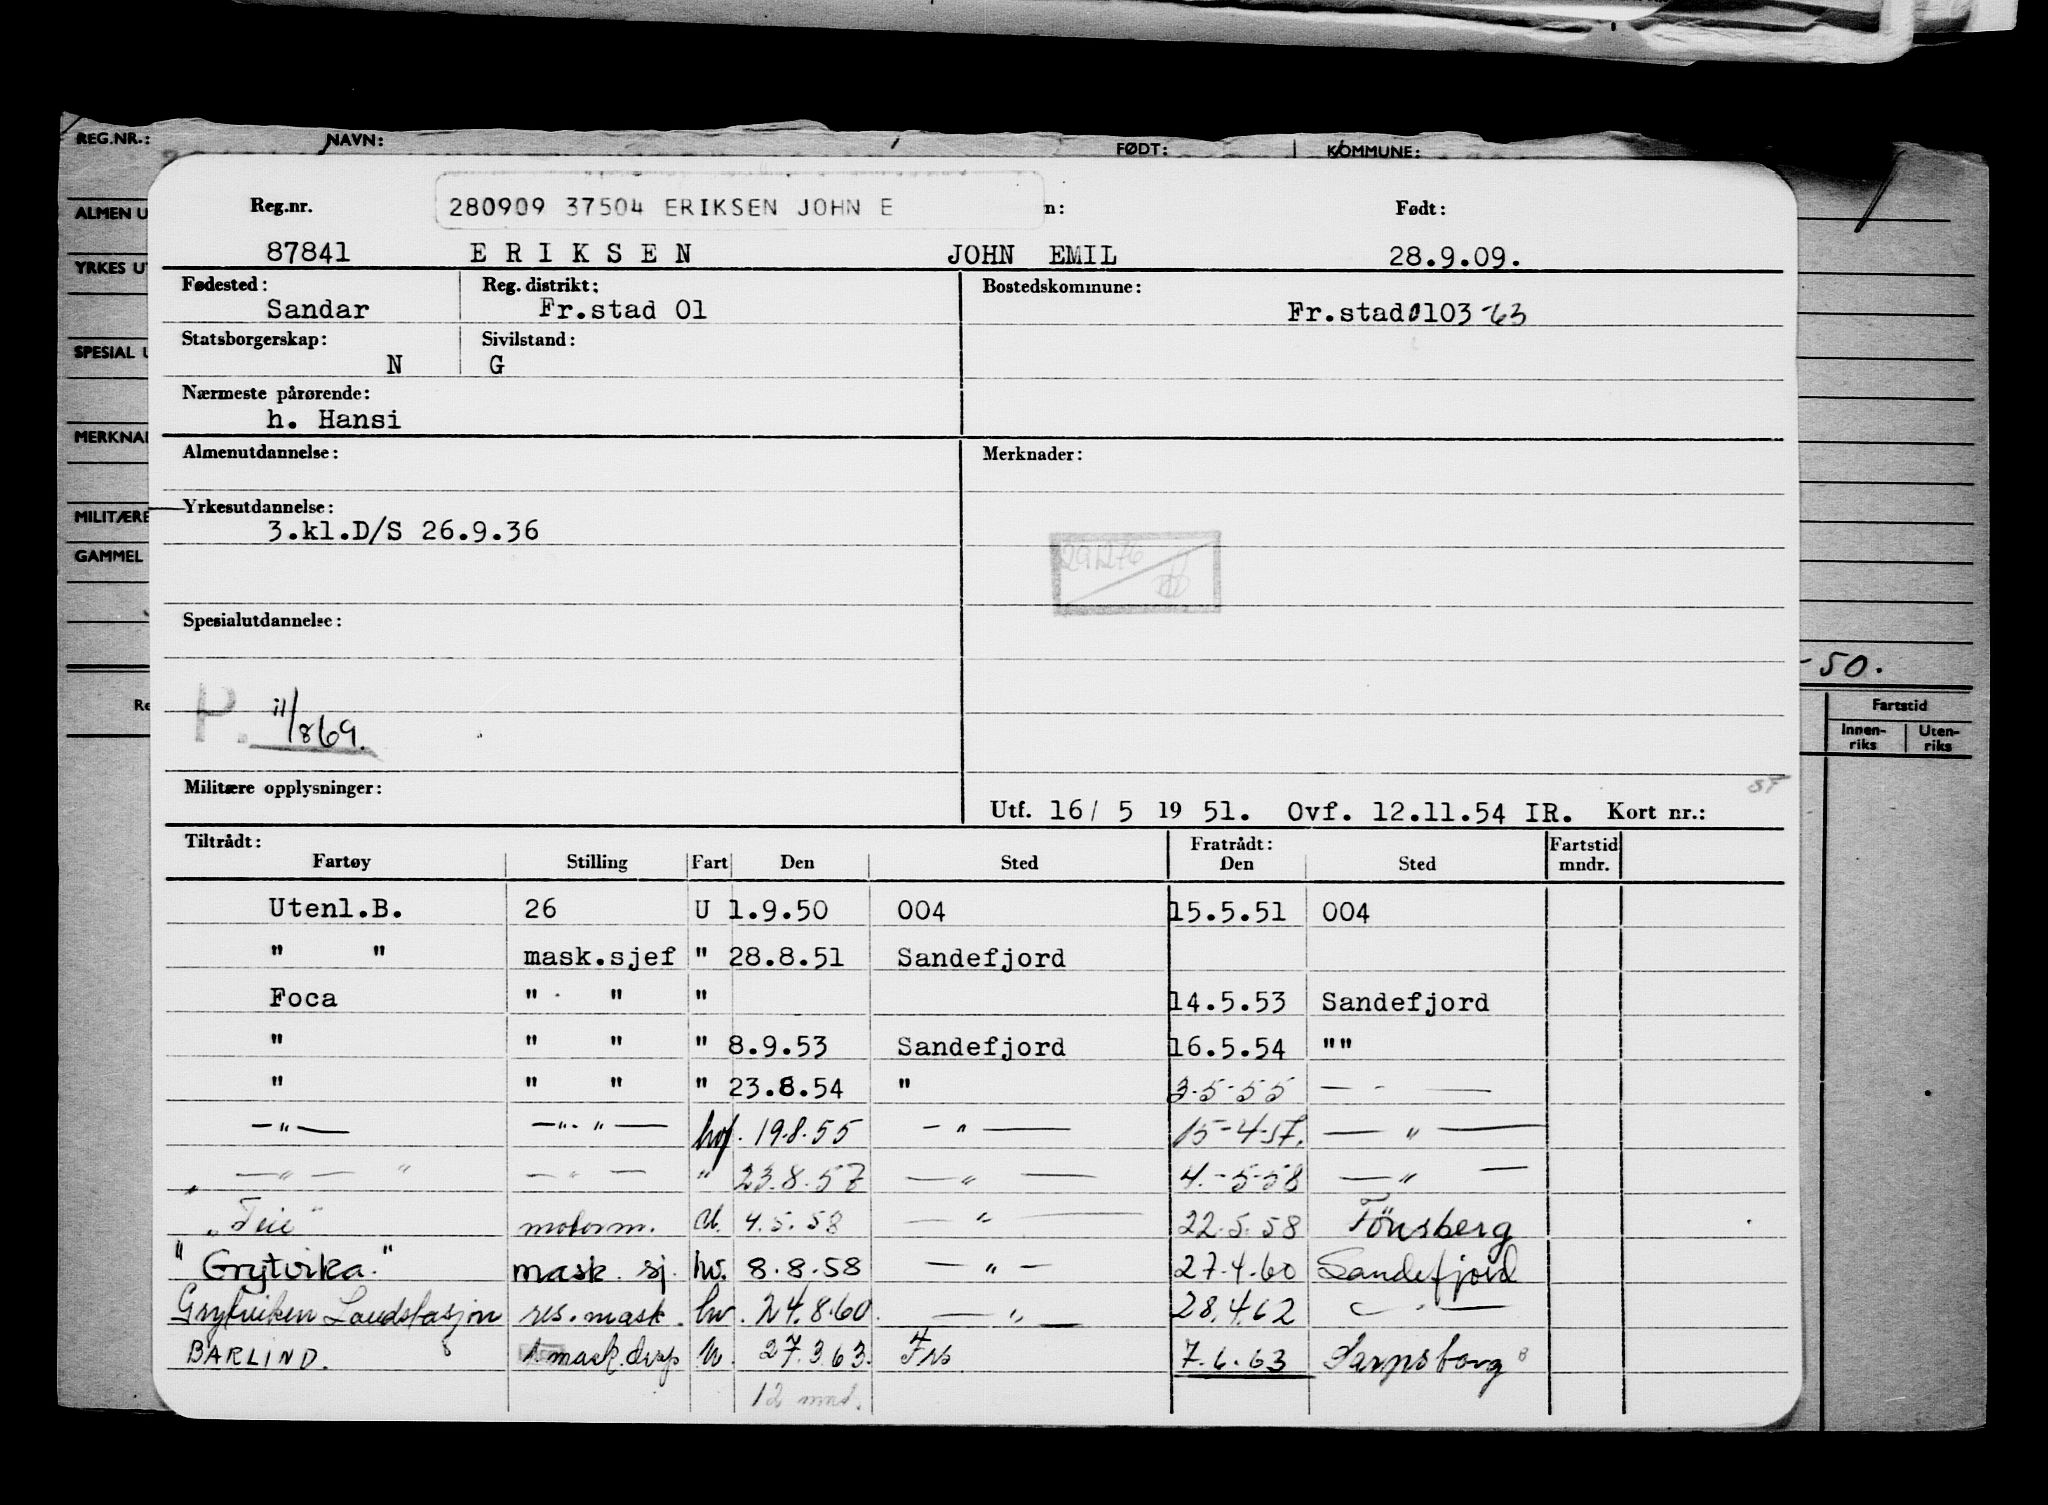 REG.NR.: NAVN: FØDT: KOMMUNE:
ALMEN U
YRKES UT
SPESIAL U
MERKNAD
MILITÆRE
GAMMEL
-50.
Re
Fartstid
Innen-riks Uten-riks
Reg.nr. 280909 37504 ERIKSEN JOHN E n: Født:
87841 E R I K S E N JOHN EMIL 28.9.09.
Fødested: Reg. distrikt: Bostedskommune:
Sandar Fr.stad 01 Fr.stad 0103 -63
Statsborgerskap: Sivilstand:
N G
Nærmeste pårørende:
h. Hansi
Almenutdannelse: Merknader:
Yrkesutdannelse:
3.kl.D/S 26.9.36
291276
Spesialutdannelse:
P. 11/869.
Militære opplysninger:
Utf. 16/ 5 19 51. Ovf. 12.11.54 IR. Kort nr.:
Tiltrådt: Fratrådt: Fartstid
Fartøy Stilling Fart Den Sted Den Sted mndr.
Utenl.B. 26 U 1.9.50 004 15.5.51 004
" " mask.sjef " 28.8.51 Sandefjord
Foca " " " 14.5.53 Sandefjord
" " " " 8.9.53 Sandefjord 16.5.54 ""
" " " " 23.8.54 " 3-5-55 — - —
—"— —"-"— hvf. 19.8.55 —"— 15-4-57. —"—
—"— " —"— " 23.8.57 —"— 4.-5-58 —"—
"Teie" motorm. U. 4.5.58 —"— 22.5.58 Tönsberg
"Grytvika." mask. sj. hv. 8.8.58 —"— 27.4.60 Sandefjord
Grytviken Landstasjon res. mask. hv. 24.8.60 —"— 28.4.62 —"—
BARLIND. 1 mask. disp U. 27.3.63. Frs 7.6.63 Sarpsborg
12 mnd.